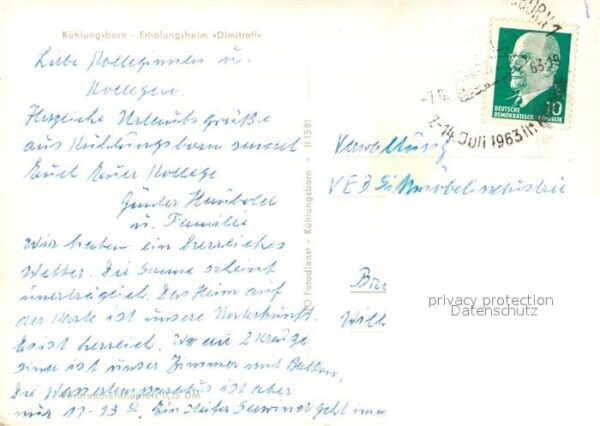 Kühlungsborn - Erholungsheim »Dimitroff«
Liebe Kolleginnen u.
Kollegen.
Herzliche Urlaubsgrüße
aus Kühlungsborn sendet
Euch Euer Kollege
Günter
u. Familie
Wir haben ein herrliches
Wetter. Die Sonne scheint
unerträglich. Das Heim auf
der Karte ist unsere Unterkunft.
Es ist herrlich. Wo die 2 Kreuze
sind ist unser Zimmer mit Balkon.
Die Wassertemperatur ist aber
nur 11-13°. Ein steifer Seewind geht imm
© Fotodienst - Kühlungsborn - II 1581
DEUTSCHE
DEMOKRATISCHE REPUBLIK
10
7.-14. Juli 1963
Verwaltung
VEB
privacy protection
Datenschutz